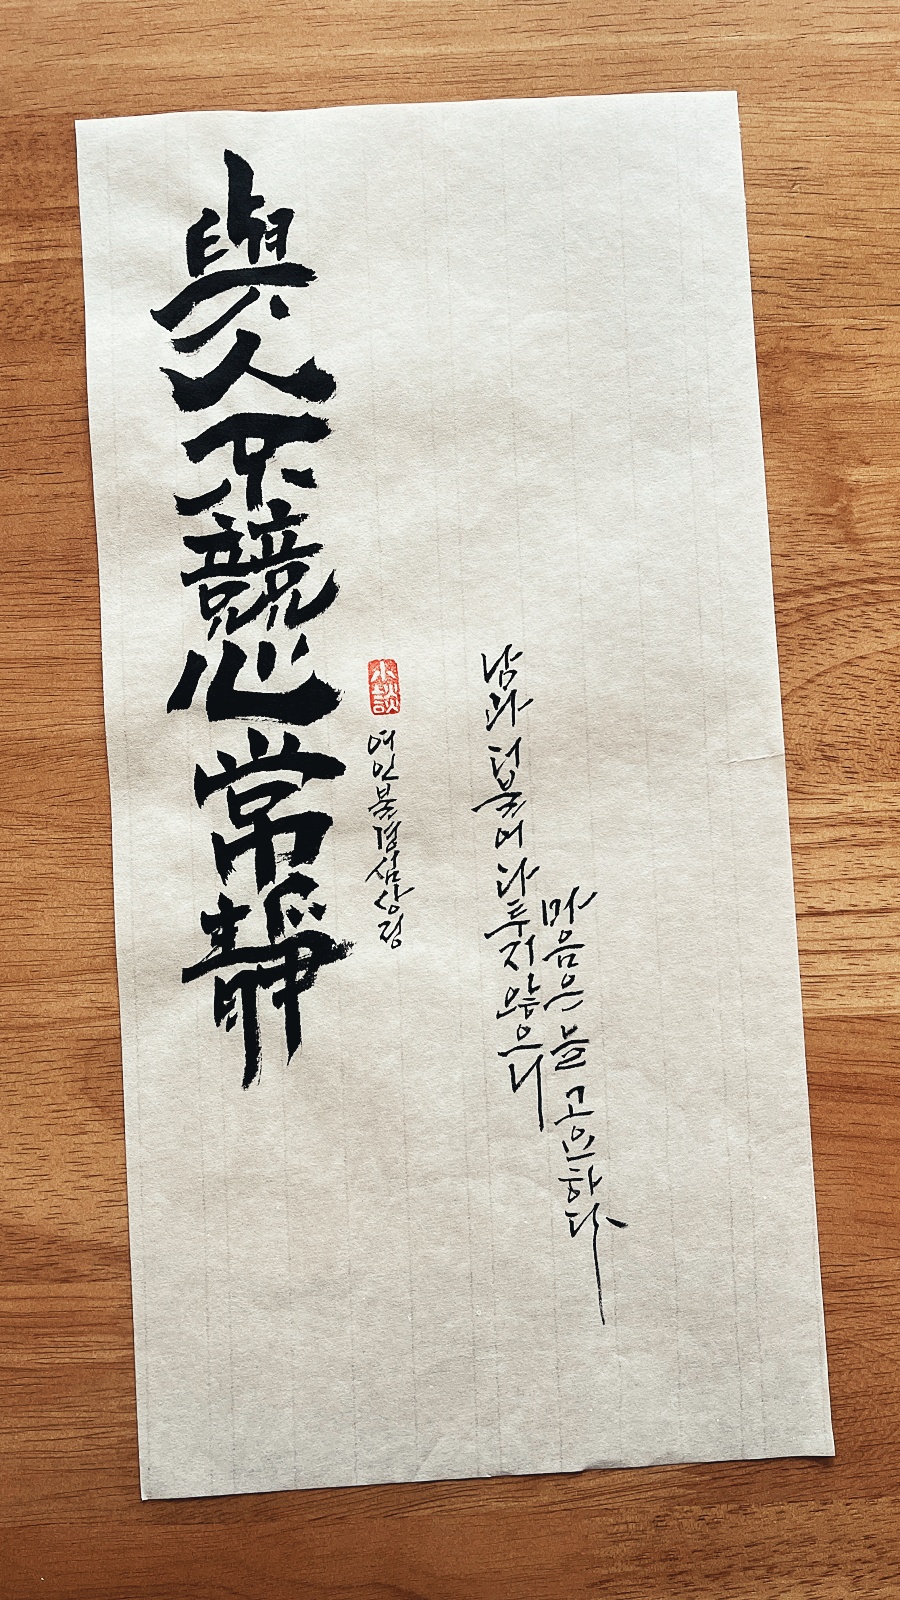 與人不競心常靜
小談
여인불경심상정
남과 더불어 다투지 않으니
마음은 늘 고요하다